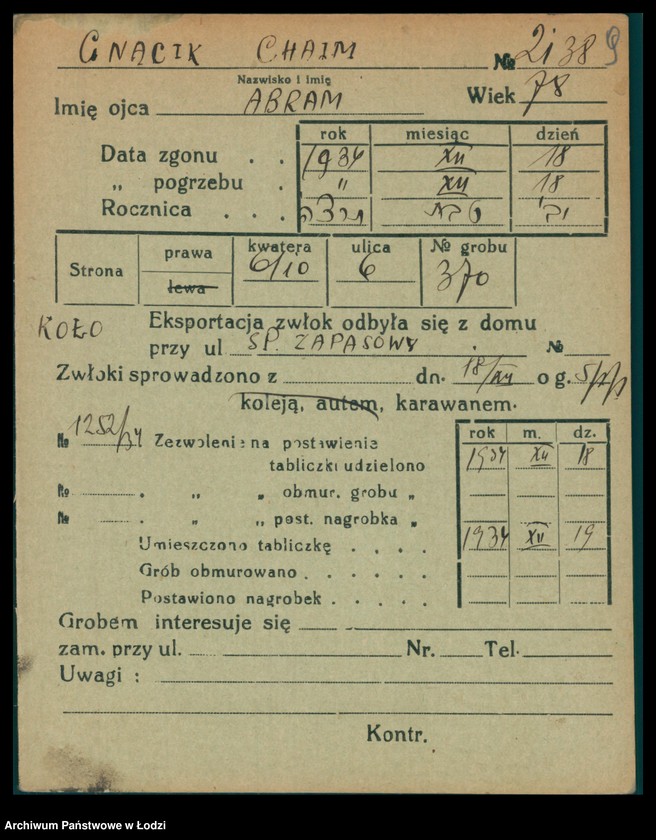 GNACIK CHAIM № 21389
Nazwisko i imię
Imię ojca ABRAM Wiek 78
rok miesiąc dzień
Data zgonu . . 1934 XII 18
„ pogrzebu . " XII 18
Rocznica . . . תרצה טבת יב'
Strona prawa lewa kwatera 6/10 ulica 6 № grobu 370
KOŁO Eksportacja zwłok odbyła się z domu
przy ul SP. ZAPASOWY. №
Zwłoki sprowadzono z dn. 18/XII o g. 5 p/p
koleją, autem, karawanem.
rok m. dz.
№ 1252/34 Zezwolenie na postawienie
tabliczki udzielono 1934 XII 18
№ . „ „ obmur. grobu „
№ . „ „ post. nagrobka „
Umieszczono tabliczkę . . . . 1934 XII 19
Grób obmurowano . . . . . .
Postawiono nagrobek . . . . .
Grobem interesuje się
zam. przy ul. Nr. Tel.
Uwagi :
Kontr.
Archiwum Państwowe w Łodzi